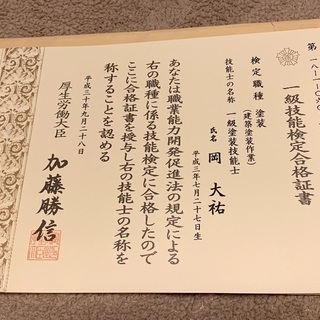 一級技能検定合格証書
検定職種 塗装
(建築塗装作業)
技能士の名称 一級塗装技能士
氏名 岡 大祐
平成三年七月二十七日生
あなたは職業能力開発促進法の規定による
右の職種に係る技能検定に合格したので
ここに合格証書を授与し右の技能士の名称を
称することを認める
平成三十年九月二十八日
厚生労働大臣 加藤勝信